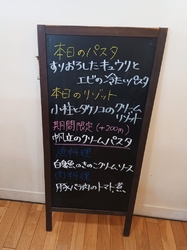 本日のパスタ
すりおろしたキュウリと
エビの冷たいパスタ
本日のリゾット
小柱とタケノコのクリーム
リゾット
期間限定(+200円)
帆立のクリームパスタ
魚料理
白身魚のきのこクリームソース
肉料理
豚バラ肉のトマト煮